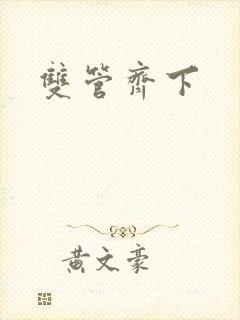 雙管齊下
黃文豪